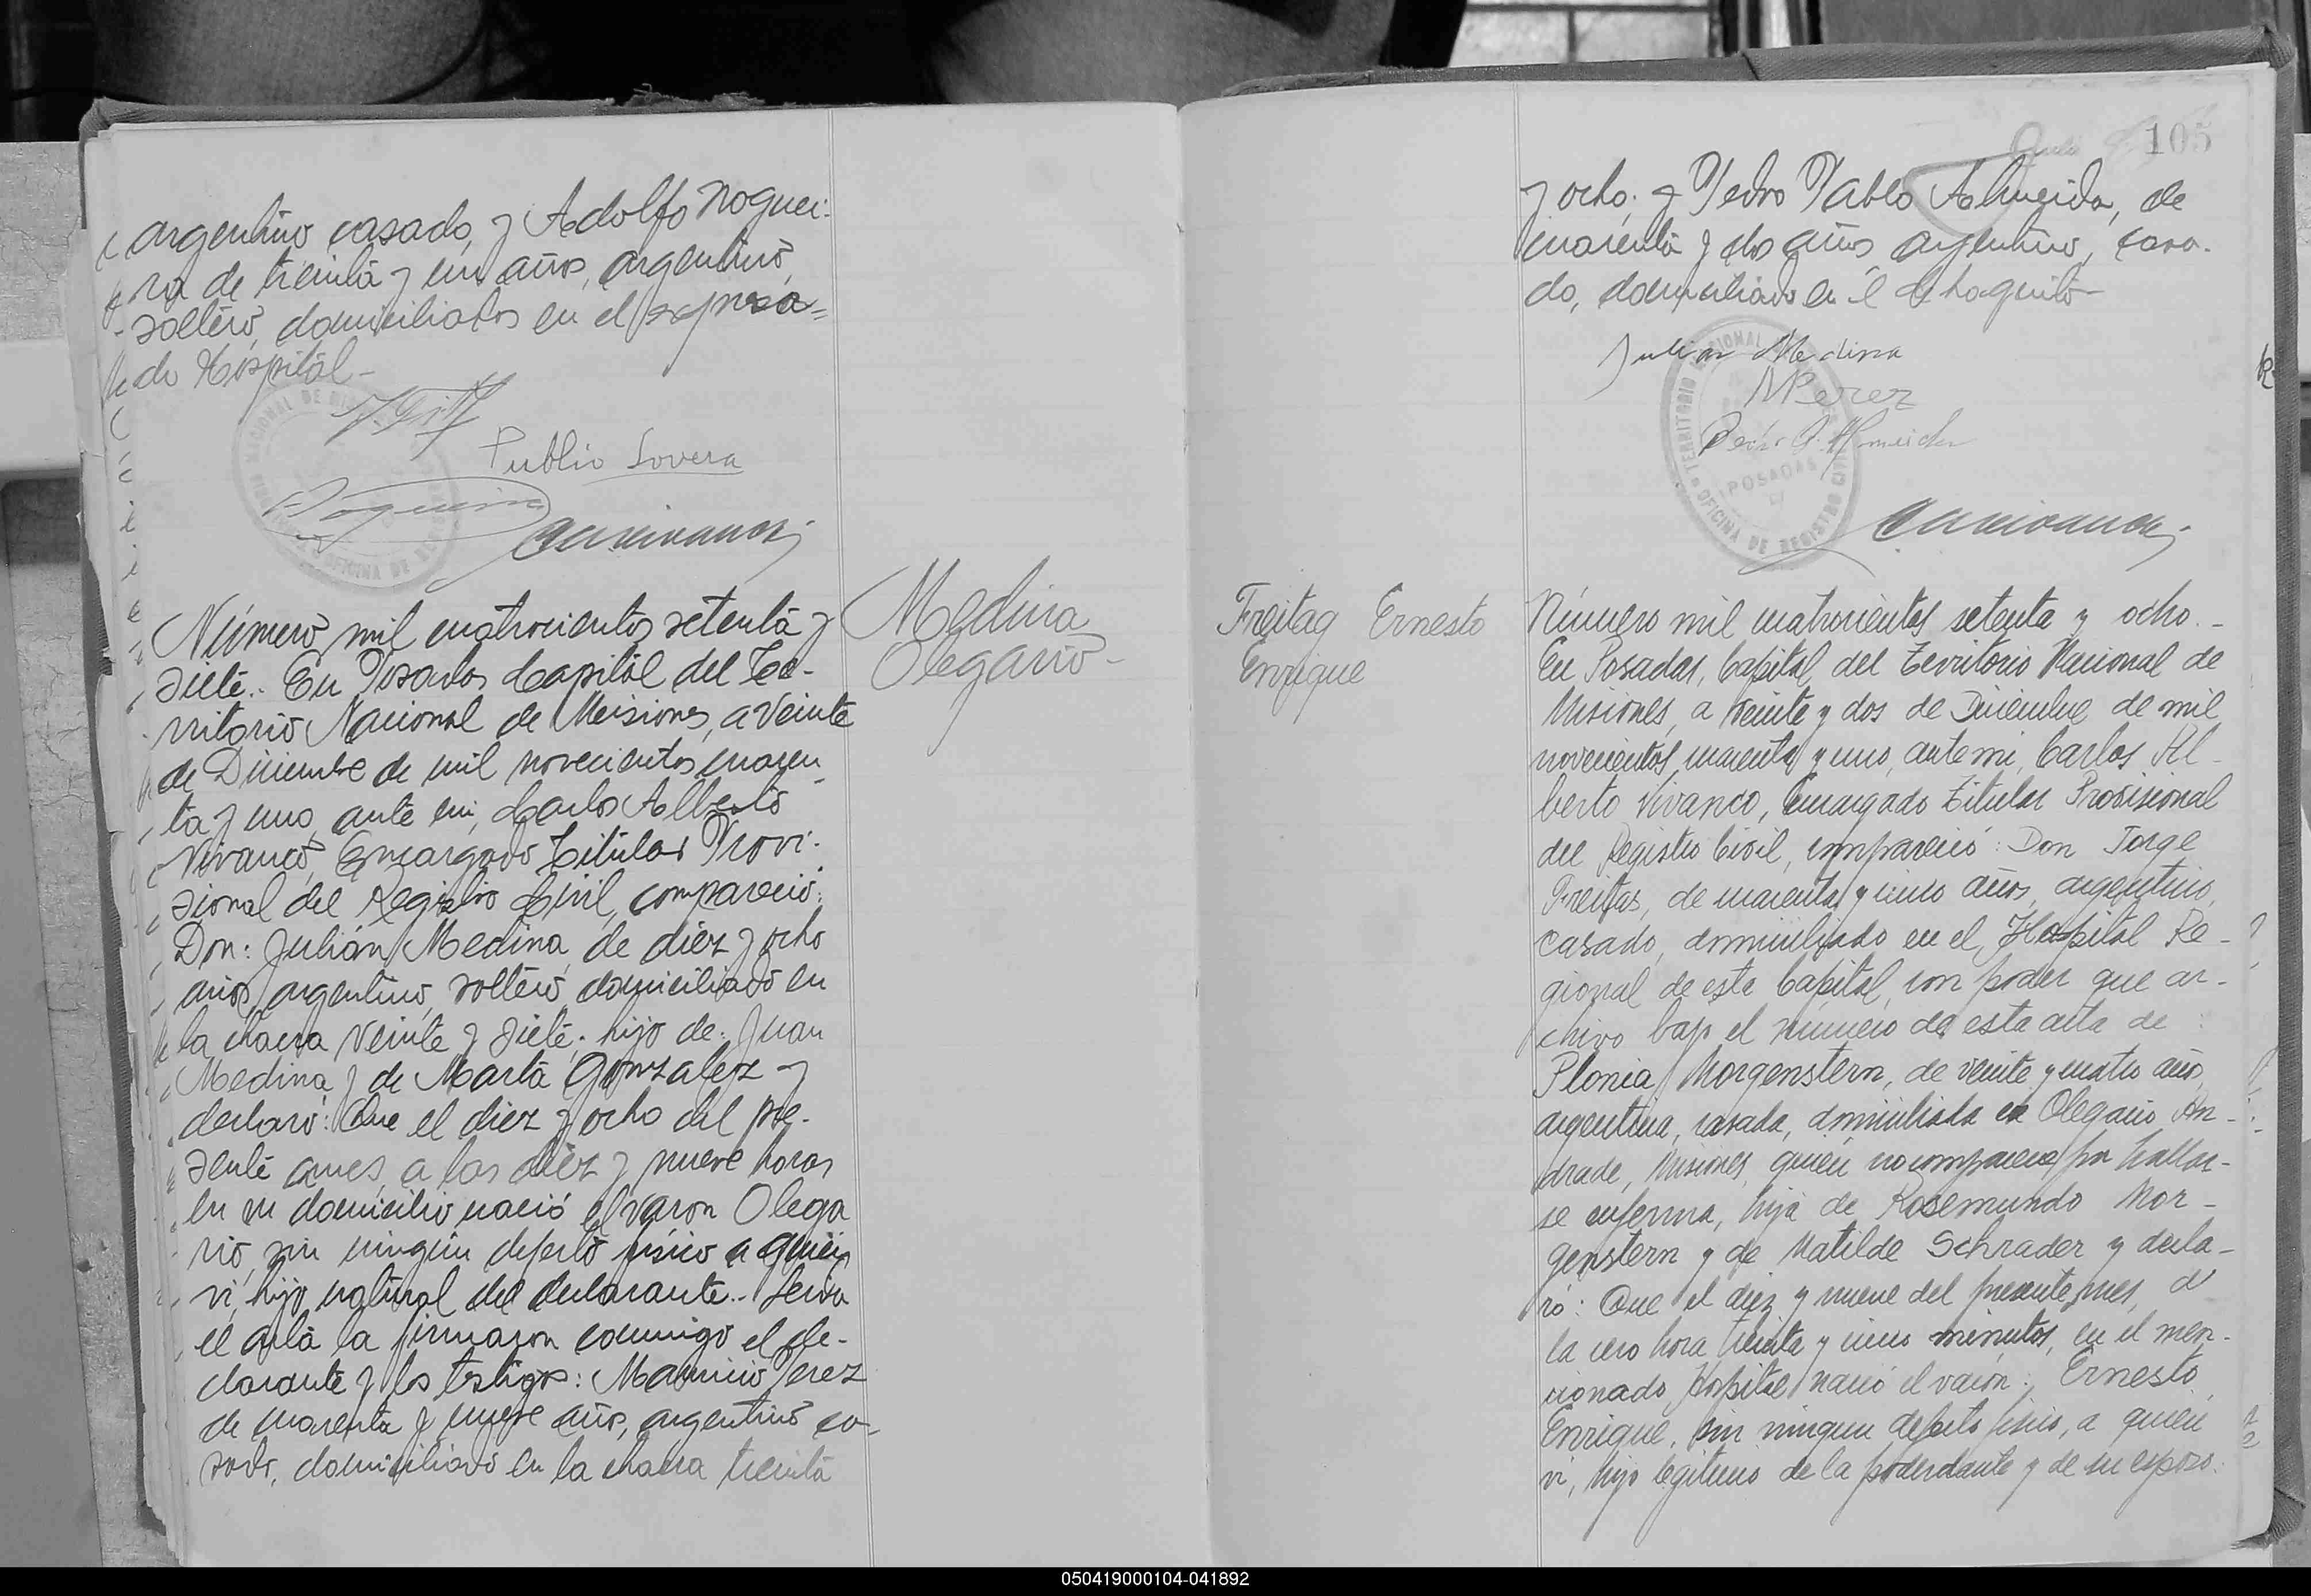 argentino casado, y Adolfo Noguei-
ra de treinta y un años, argentino,
soltero, domiciliados en el expresa=
do Hospital-
Publio Lovera
Número mil cuatrocientos setenta y
siete.. En Posadas Capital del Te-
rritorio Nacional de Misiones, a veinte
de Diciembre de mil novecientos cuaren
ta y uno, ante mi, Carlos Alberto
Vivanco, Encargado Titular Provi-
sional del Registro Civil, compareció:
Don: Julián Medina, de diez y ocho
años, argentino, soltero, domiciliado en
la chacra veinte y siete, hijo de: Juan
Medina y de Marta Gonzalez y
declaró: Que el diez y ocho del pre-
sente mes, a las diez y nueve horas
en su domicilio nació el varon Olega
rio, sin ningún defecto físico a quien
vi, hijo natural del declarante.. Leida
el acta la firmaron conmigo el de-
clarante y los testigos: Mauricio Perez
de cuarenta y nueve años, argentino ca-
sado, domiciliado en la chacra treinta
Medina
Olegario-
105
y ocho; y Pedro Pablo Almeida, de
cuarenta y dos años argentino, casa-
do, domiciliado en el Chaquito
Julian Medina
M Perez
Pedro P. Almeida
TERRITORIO NACIONAL
POSADAS
OFICINA DE REGISTRO CIVIL
Freitag Ernesto
Enrique
Número mil cuatrocientos setenta y ocho.-
En Posadas, Capital del Territorio Nacional de
Misiones, a veinte y dos de Diciembre de mil
novecientos cuarenta y uno, ante mi, Carlos Al-
berto Vivanco, Encargado Titular Provisional
del Registro Civil, compareció: Don Jorge
Freitas, de cuarenta y cinco años, argentino,
casado, domiciliado en el Hospital Re-
gional de esta Capital, con poder que ar-
chivo bajo el número de esta acta de:
Plonia Morgenstern, de veinte y cuatro años,
argentina, casada, domiciliada en Olegario An-
drade, Misiones, quien no comparece por hallar-
se enferma, hija de Rosemundo Mor-
genstern y de Matilde Schrader y decla-
ró: Que el diez y nueve del presente mes, a
la cero hora treinta y cinco minutos, en el men-
cionado Hospital nació el varón: Ernesto
Enrique, sin ningun defecto físico, a quien
vi, hijo legítimo de la poderdante y de su esposo:
050419000104-041892